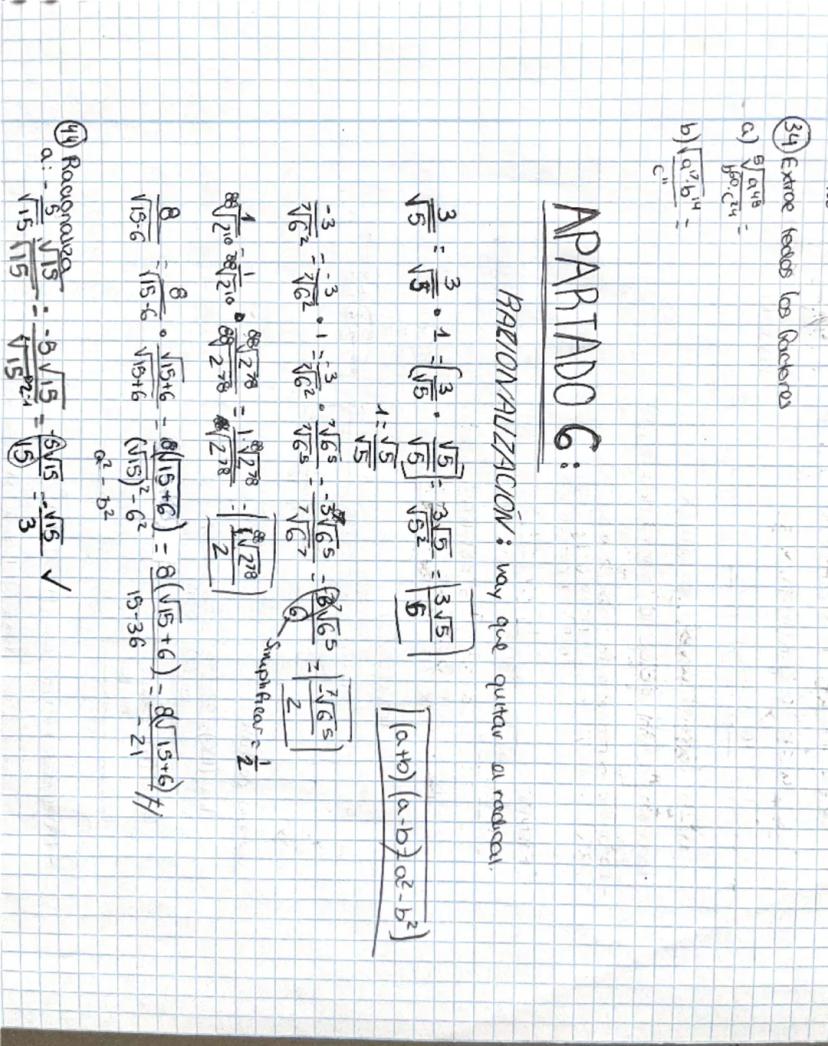 34 Extrae todos los factores
a) ⁵√a⁴⁸ / b⁵⁰·c²⁴ =
b) √a⁷·b¹⁴ / c¹¹ =
APARTADO 6:
RACIONALIZACIÓN: hay que quitar el radical.
3/√5 = 3/√5 · 1 = (3/√5 · √5/√5) = 3√5/√5² = 3√5/5
1 = √5/√5
(a+b)(a-b)=a²-b²
-3/⁷√6² = -3/⁷√6² · 1 = -3/⁷√6² · ⁷√6⁵/⁷√6⁵ = -3⁷√6⁵/⁷√6⁷ = -3⁷√6⁵/6 = -⁷√6⁵/2
Simplificar = 1/2
1/⁸⁸√2¹⁰ = 1/⁸⁸√2¹⁰ · ⁸⁸√2⁷⁸/⁸⁸√2⁷⁸ = 1·⁸⁸√2⁷⁸/⁸⁸√2⁷⁸ = ⁸⁸√2⁷⁸/2
8/√15-6 = 8/√15-6 · √15+6/√15+6 = 8(√15+6)/(√15)²-6² = 8(√15+6)/15-36 = 8(√15+6)/-21
a² - b²
44 Racionaliza
a: -5/√15 · √15/√15 = -5√15/√15² = -5√15/15 = -√15/3 ✓